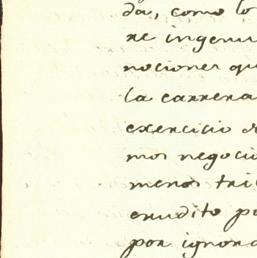 da, como lo
re ingeni
nociones qu
la carrera
exercicio d
mos negocio
menos tri
erudito po
por ignora